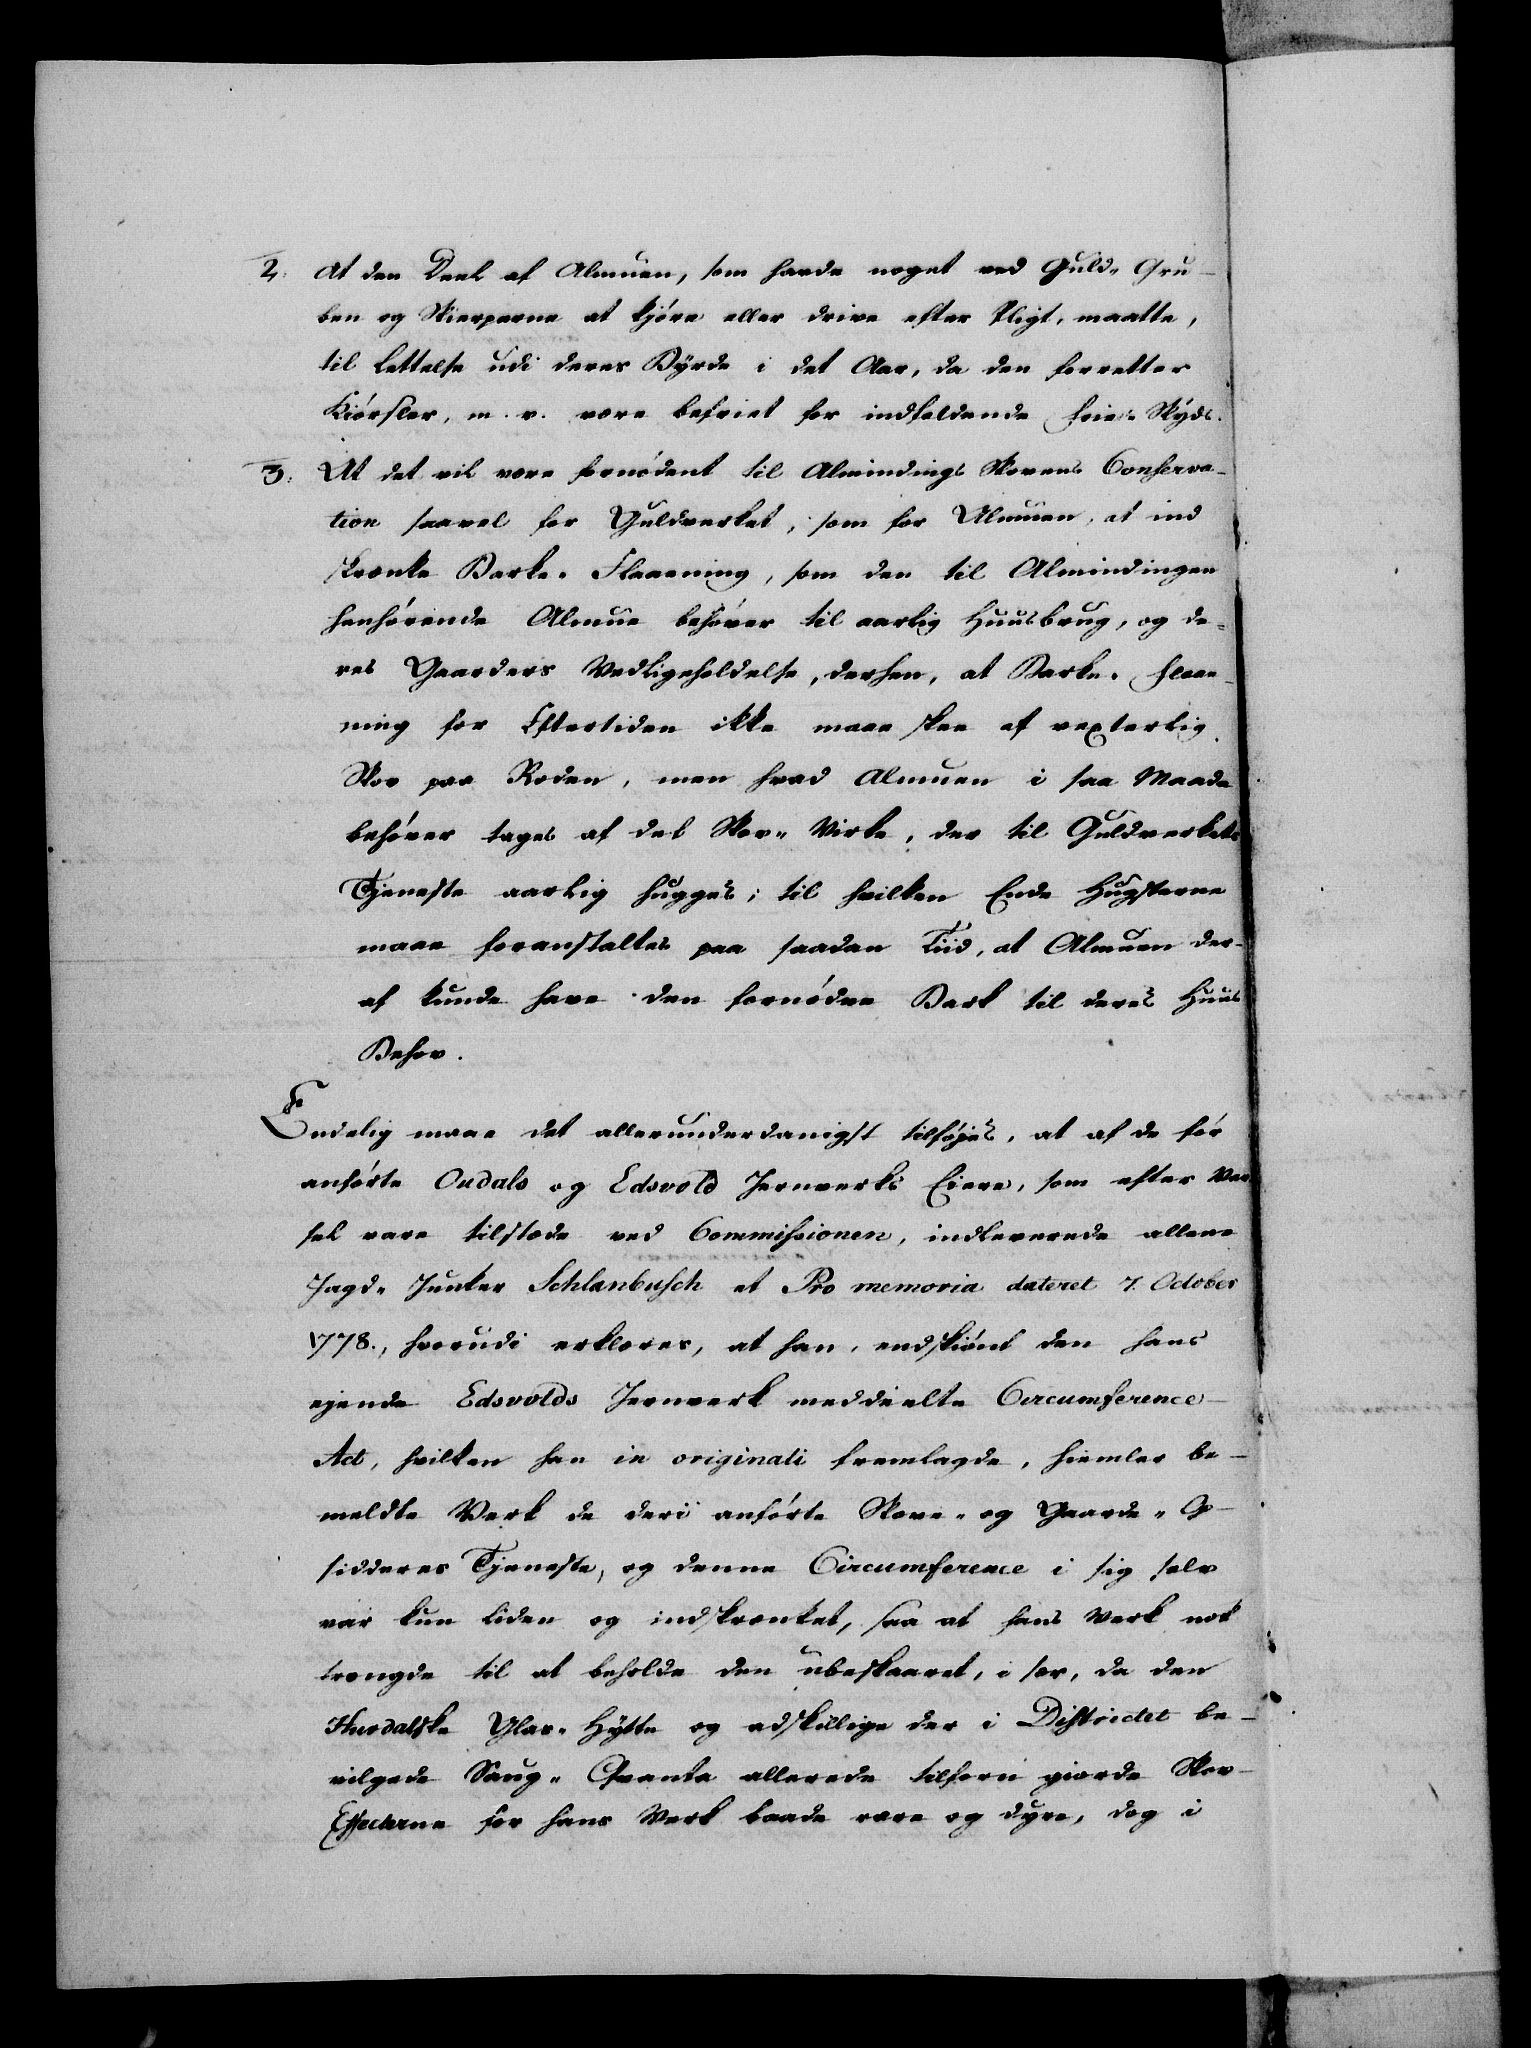 2. At den Deel af Almuen, som havde noget ved Guld-Gru-
ben og Skierperne at kjøre eller drive efter Pligt, maatte,
til Lettelse udi deres Byrde i det Aar, da den forretter
Kiørsler, m. v. være befriet for indfaldende frie-Skyds.
3. At det vil være fornødent til Almindings Skovens Conserva-
tion saavel for Guldverket, som for Almuen, at ind
skrænke Barke-Flaaening, som den til Almindingen
henhørende Almue behøver til aarlig Huusbrug, og de-
res Gaarders Vedligeholdelse, derhen, at Barke-Flaae-
ning for Eftertiden ikke maae skee af vexterlig
Skov paa Roden, men hvad Almuen i saa Maade
behøver tages af det Skov-Virke, der til Guldverkets
Tjeneste aarlig hugges; til hvilken Ende Hugsterne
maae foranstaltes paa saadan Tiid, at Almuen der-
af kunde have den fornødne Bark til deres Huus
Behov.
Endelig maae det allerunderdanigst tilføjes, at af de før
anførte Oudals og Edsvold Jernverks Eiere, som efter Var
sel vare tilstæde ved Commissionen, indleverede allene
Jagd-Junker Schlanbusch et Pro memoria dateret 7. October
1778., hvorudi erklæres, at han, endskiønt den hans
ejende Edsvolds Jernverk meddeelte Circumference-
Act, hvilken han in originali fremlagde, hiemler be-
meldte Verk de deri anførte Skove- og Gaarde-Op-
sidderes Tjeneste, og denne Circumference i sig selv
var kun liden og indskrænket, saa at hans Verk nok
trængde til at beholde den ubeskaaret, i sær, da den
Hurdalske Glas-Hytte og adskillige der i Districtet be-
vilgede Saug-Qvanta allerede tilforn giorde Skov-
Effecterne for hans Verk baade rare og dyre, dog i